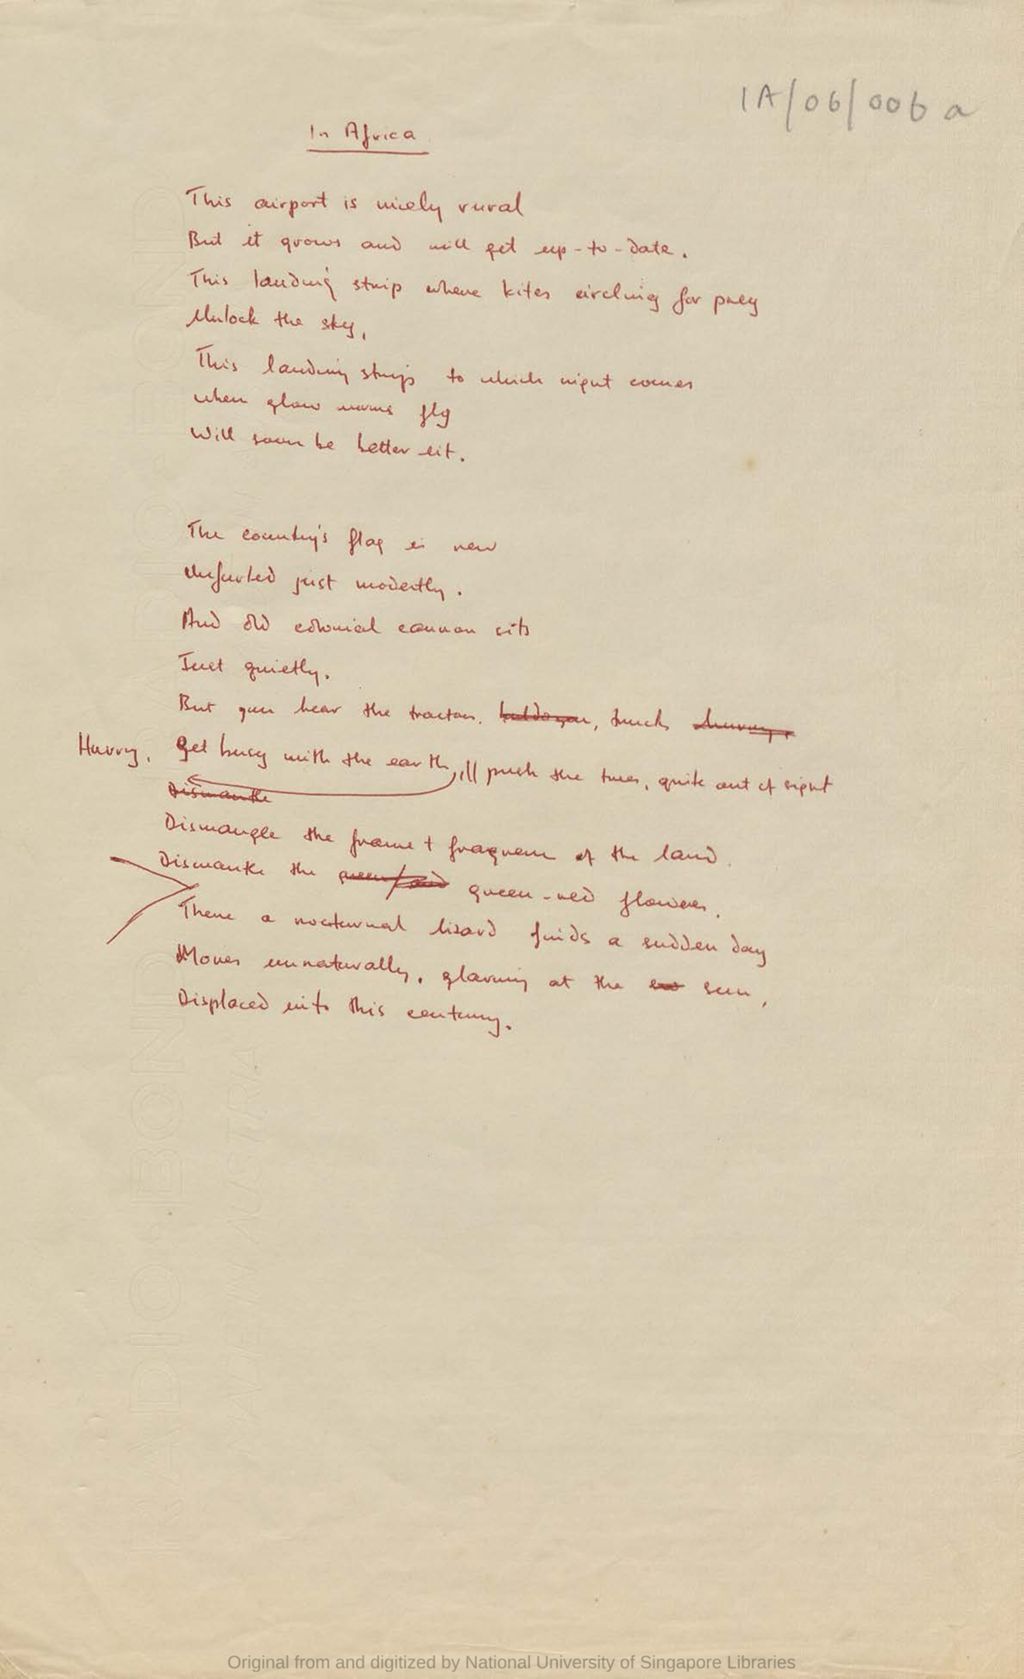 1A/06/006 a
In Africa
This airport is nicely rural
But it grows and will get up-to-date.
This landing strip where kites circling for prey
Unlock the sky,
This landing strip to which night comes
when glow worms fly
Will soon be better lit.
The country's flag is new
Unfurled just modestly.
And old colonial cannon sits
Just quietly.
But you hear the tractors, bulldozer, truck
Hurry, get busy with the earth, push the trees, quite out of sight
Dismantle
Dismangle the frame + of the land.
Dismantle the queen-red flowers.
There a nocturnal lizard finds a sudden day
Moves unnaturally, glaring at the sun,
Displaced into this century.
RADIO BOND
Original from and digitized by National University of Singapore Libraries